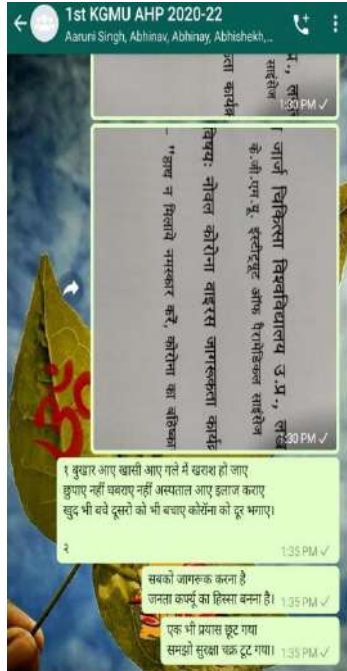 1st KGMU AHP 2020-22
Aaruni Singh, Abhinav, Abhinay, Abhishekh,...
म., लख
साइंसेज
ता कार्यक्र
1:30 PM
जार्ज चिकित्सा विश्वविद्यालय उ.प्र., लख
के.जी.एम.यू. इंस्टीट्यूट ऑफ पैरामेडिकल साइंसेज
विषय: नोवल कोरोना वाइरस जागरूकता कार्यक्र
- "हाथ न मिलावे नमस्कार करें, कोरोना का बहिष्का
1:30 PM
ॐ
१ बुखार आए खासी आए गले में खराश हो जाए
छुपाए नहीं घबराए नहीं अस्पताल आए इलाज कराए
खुद भी बचे दूसरो को भी बचाए कोरोंना को दूर भगाए।
२
1:35 PM
सबको जागरूक करना है
जनता कर्फ्यू का हिस्सा बनना है। 1:35 PM
एक भी प्रयास छूट गया
समझो सुरक्षा चक्र टूट गया। 1:35 PM